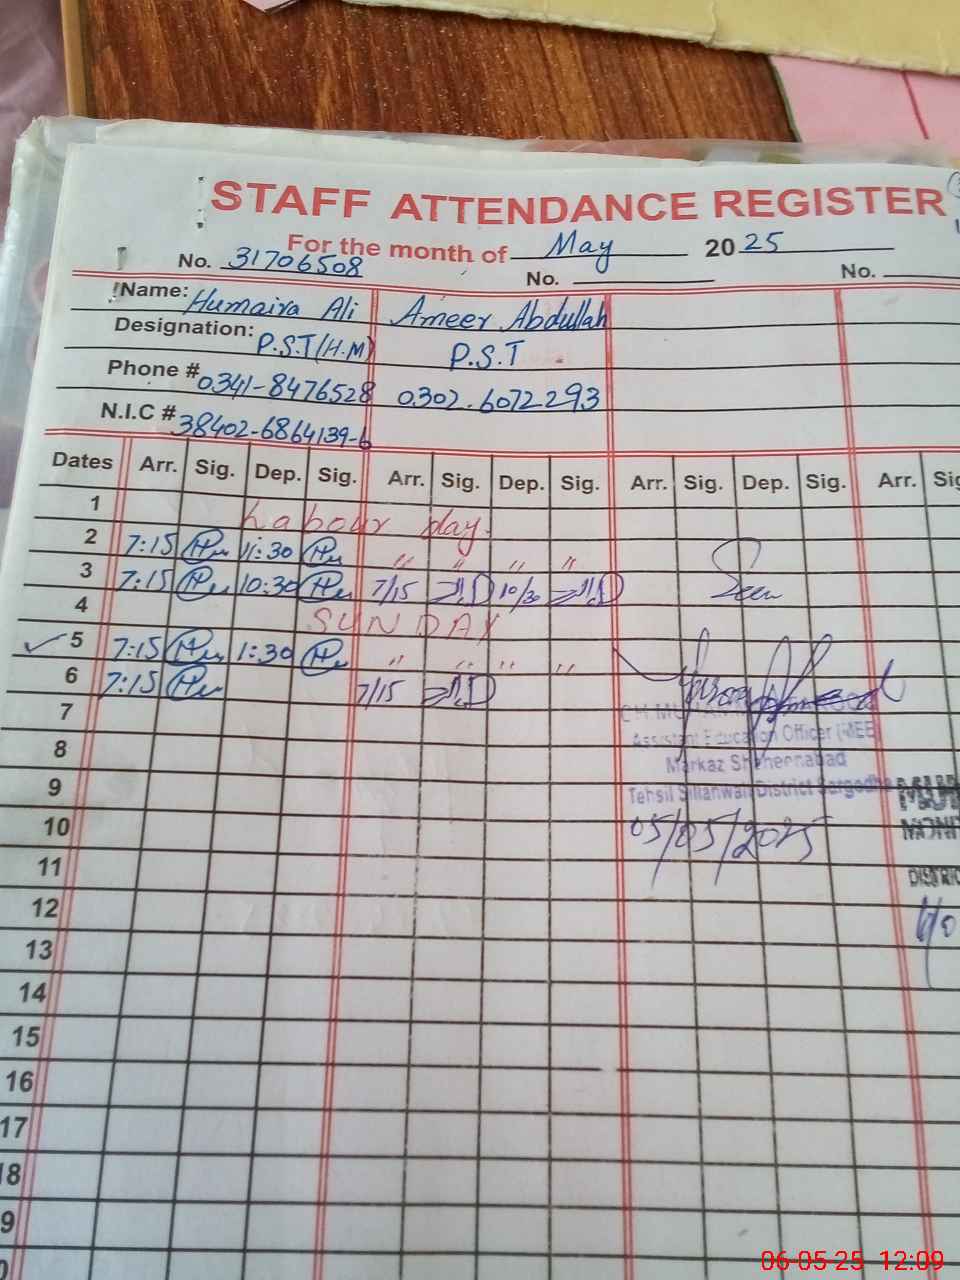 STAFF ATTENDANCE REGISTER
For the month of May 2025
No. 31706508 No. No.
Name: Humaira Ali Ameer Abdullah
Designation: P.S.T(H.M) P.S.T
Phone # 0341-8476528 0302-6072293
N.I.C # 38402-6864139-6
Dates Arr. Sig. Dep. Sig. Arr. Sig. Dep. Sig. Arr. Sig. Dep. Sig. Arr. Sig
1 Labour day.
2 7:15 11:30 " " " "
3 7:15 10:30 7/15 10/30 Seen
4 SUNDAY
5 7:15 1:30 " " " "
6 7:15 7/15
7
Assistant Education Officer (MEE)
8 Markaz Shaheenabad
9 Tehsil Sillanwali District Sargodha
10 05/05/2025
11 DISTRIC
12
13
14
15
16
17
18
9
0
06-05-25 12:09